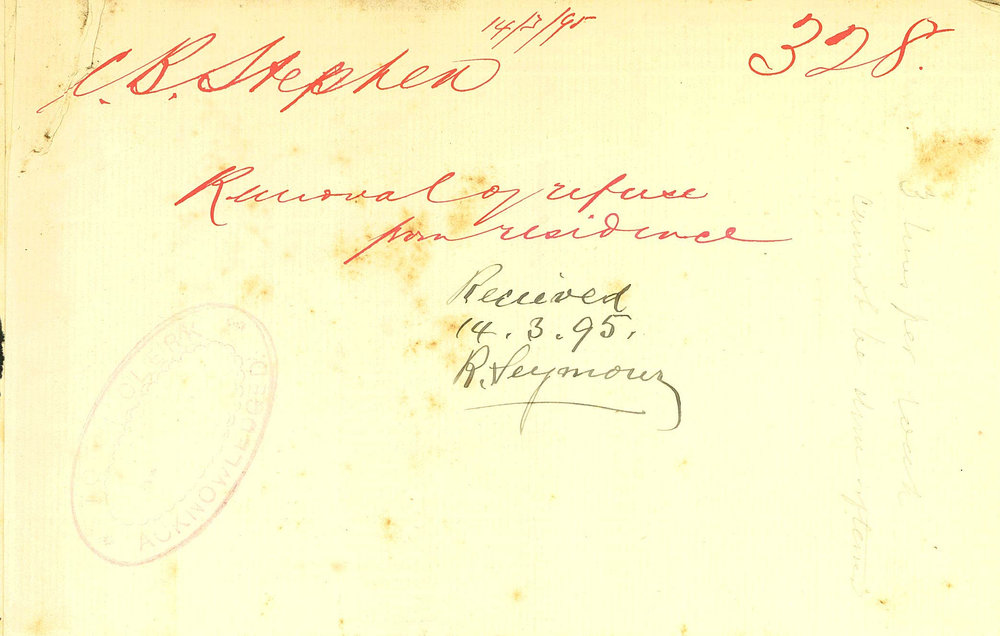 14/3/95
C. B. Stephen
328.
Removal of refuse
from residence
Recieved
14. 3. 95.
R. Seymour
TOWN CLERK
ACKNOWLEDGED
3 times per week
cannot be done oftener